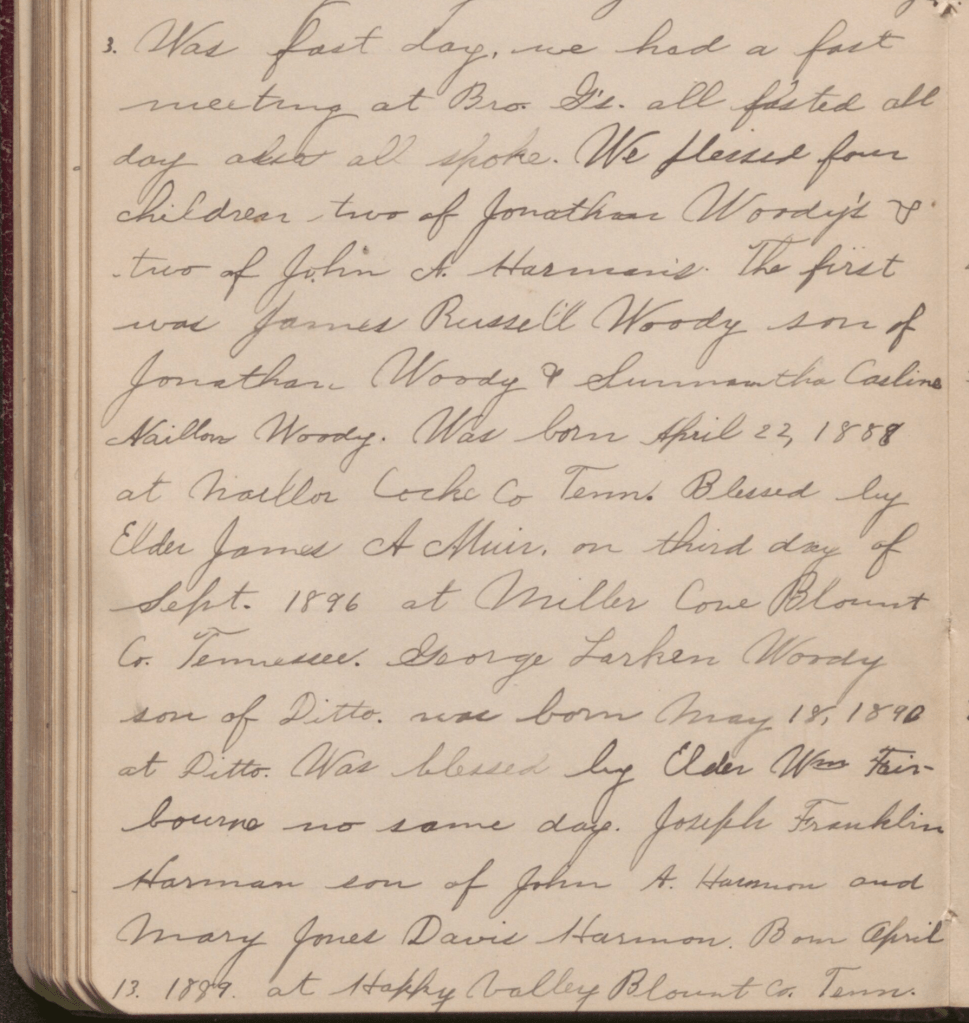 3. Was fast day, we had a fast
meeting at Bro. G's. all fasted all
day also all spoke. We blessed four
children two of Jonathan Woody's &
two of John A. Harman's. The first
was James Russell Woody son of
Jonathan Woody & Sunmantha Casline
Naillon Woody. Was born April 22, 1888
at Naillor Cocke Co Tenn. Blessed by
Elder James A Muir. on third day of
Sept. 1896 at Miller Cove Blount
Co. Tennessee. George Larken Woody
son of Ditto. was born May 18, 1890
at Ditto. Was blessed by Elder Wm Fair-
bourne no same day. Joseph Franklin
Harman son of John A. Harmon and
Mary Jones Davis Harmon. Born April
13. 1889. at Happy Valley Blount Co. Tenn.